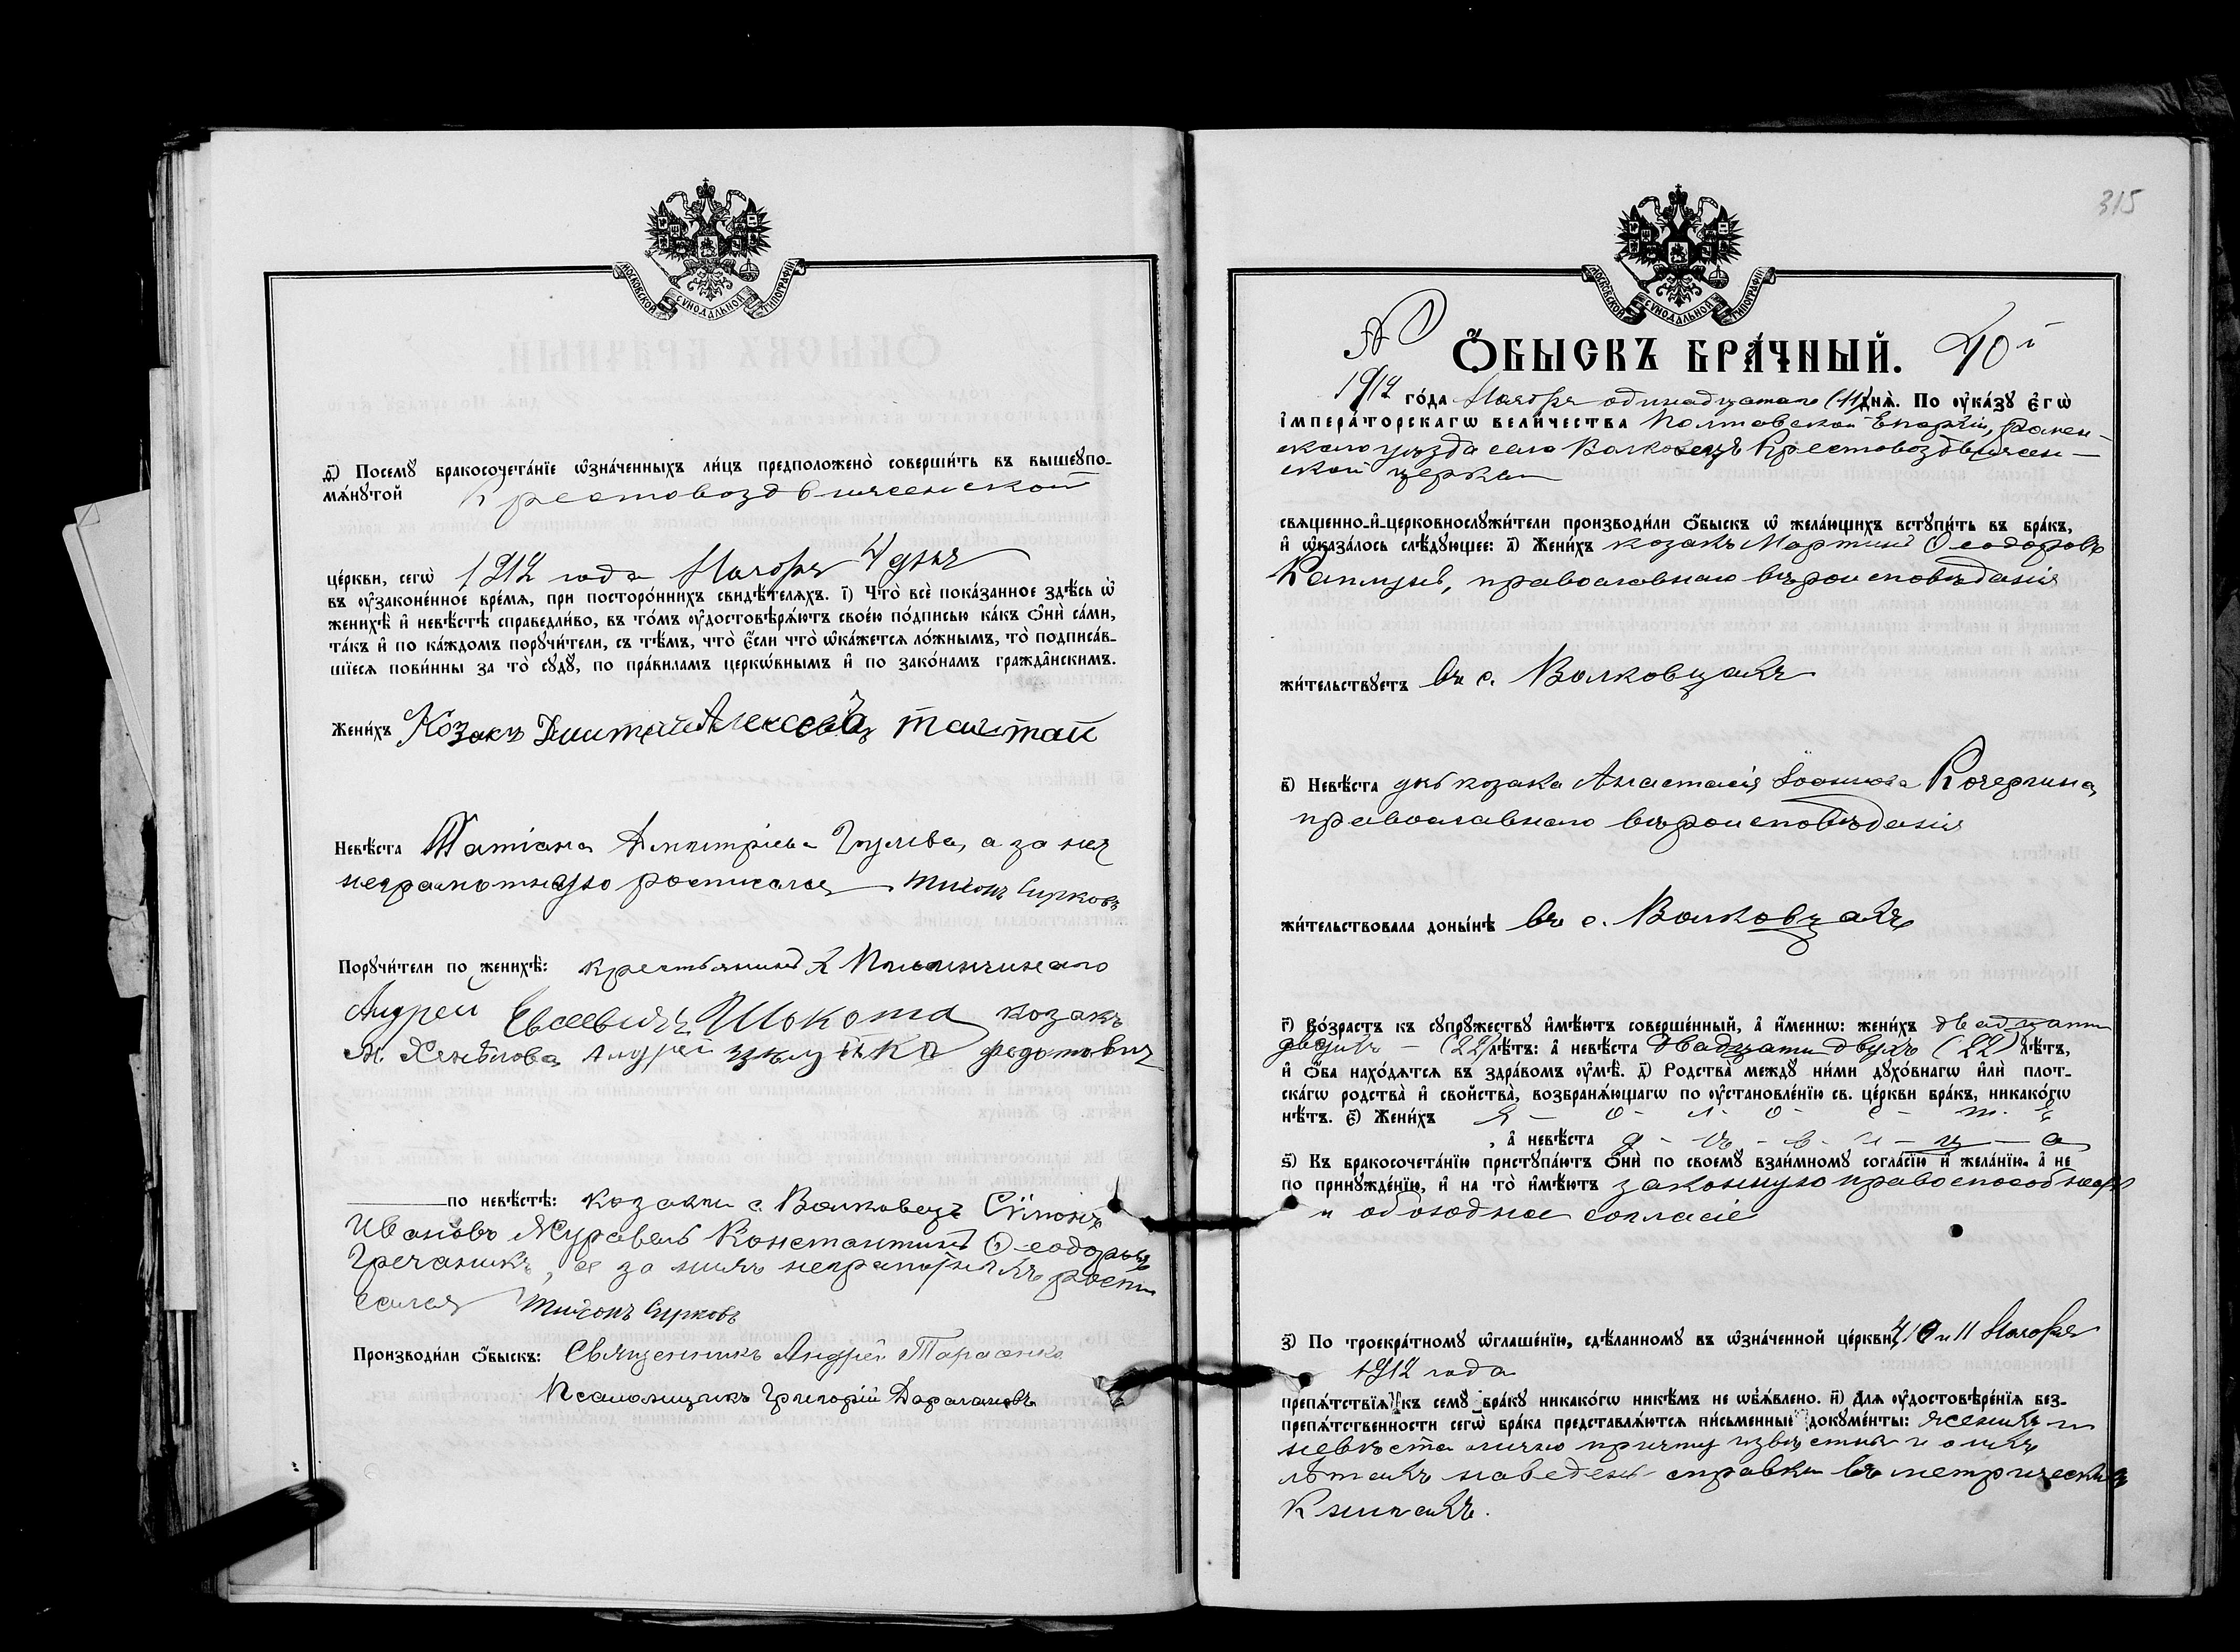 МОСКОВСКОЙ СУНОДАЛЬНОЙ ТИПОГРАФІИ
ѳ҃) Посемꙋ бракосочета́нїе ѡ҆зна́ченныхъ ли́цъ предположено̀ соверши́ть въ вышеꙋпо-
мѧ́нꙋтой Крестовоздвиженской
це́ркви, сегѡ̀ 1912 года Ноября 4 дня
въ ᲂу҆законе́нное вре́мѧ, при посторо́ннихъ свидѣ́телѧхъ. і҃) Что̀ всѐ пока́занное здѣ́сь ѡ҆
женихѣ̀ и҆ невѣ́стѣ справедли́во, въ то́мъ ᲂу҆достовѣрѧ́ютъ свое́ю по́дписью ка́къ ѻ҆нѝ са́ми,
та́къ и҆ по ка́ждомъ порꙋчи́тели, съ тѣ́мъ, что̀ є҆́сли что̀ ѡ҆ка́жетсѧ ло́жнымъ, то̀ подписа́в-
шїесѧ пови́нны за то̀ сꙋдꙋ̀, по пра́виламъ церко́внымъ и҆ по зако́намъ гражда́нскимъ.
Жени́хъ Козакъ Дмитрій Алексѣевъ
Невѣ́ста Татіана Димитріева а за нея
неграмотную росписался Тихонъ Сирковъ
Порꙋчи́тели по женихѣ̀: крестьянинъ
Андрей Евсеевичъ Шокота козакъ
Андрей Федотовичъ
по невѣ́стѣ: козаки с. Волковецъ
Ивановъ Журавель Константинъ Ѳеодоровъ
Гречаникъ, а за нихъ неграмотныхъ роспи
сался Тихонъ Сирковъ
Производи́ли ѻ҆́быскъ: Священникъ Андрей Тарасенко
Псаломщикъ Григорій Дарагановъ
315
МОСКОВСКОЙ СУНОДАЛЬНОЙ ТИПОГРАФІИ
№ Ѻ҆́БЫСКЪ БРА́ЧНЫЙ. 40й
1912 го́да Ноября одинадцатаго (11) днѧ̀. По ᲂу҆ка́зꙋ є҆гѡ̀
і҆мпера́торскагѡ вели́чества Полтавской Епархіи, Ромен-
скаго уѣзда села Волковецъ Крестовоздвижен-
ской церкви
свѧщенно-и҆-церковнослꙋжи́тели производи́ли ѻ҆́быскъ ѡ҆ жела́ющихъ встꙋпи́ть въ бра́къ,
и҆ ѡ҆каза́лось слѣ́дꙋющее: а҃) Жени́хъ козакъ Мартинъ Ѳеодоровъ
Каплунъ, православнаго вѣроисповѣданія
жи́тельствꙋетъ въ с. Волковцахъ
в҃) Невѣ́ста дчь козака Анастасія Іоаннова Кочергина,
православнаго вѣроисповѣданія
жи́тельствовала доны́нѣ въ с. Волковцахъ
г҃) Во́зрастъ къ сꙋпрꙋ́жествꙋ и҆мѣ́ютъ соверше́нный, а҆ и҆́меннѡ: жени́хъ двадцати
двухъ – (22) лѣ́тъ: а҆ невѣ́ста двадцати двухъ (22) лѣ́тъ,
и҆ ѻ҆́ба нахо́дѧтсѧ въ здра́вомъ ᲂу҆мѣ̀. д҃) Родства̀ междꙋ ни́ми дꙋхо́внагѡ и҆лѝ плот-
ска́гѡ родства̀ и҆ свойства̀, возбранѧ́ющагѡ по ᲂу҆становле́нїю св. це́ркви бра́къ, никако́гѡ
нѣ́тъ. є҃) Жени́хъ х – о – л – о – с – т – ъ
, а҆ невѣ́ста д – ѣ – в – и – ц – а
ѕ҃) Къ бракосочета́нїю пристꙋпа́ютъ ѻ҆нѝ по своемꙋ̀ взаи́мномꙋ согла́сїю и҆ жела́нїю, а҆ не
по принꙋжде́нїю, и҆ на то̀ и҆мѣ́ютъ законную правоспособность
и обоюдное согласіе
з҃) По троекра́тномꙋ ѡ҆глаше́нїю, сдѣ́ланномꙋ въ ѡ҆зна́ченной це́ркви 4, 10 и 11 Ноября
1912 года
препѧ́тствїѧ къ семꙋ̀ бра́кꙋ никако́гѡ никѣ́мъ не ѡ҆б̾ѧ́влено. и҃) Длѧ ᲂу҆достовѣре́нїѧ без-
препѧ́тственности сегѡ̀ бра́ка представлѧ́ютсѧ пи́сьменные докꙋме́нты: женихъ и
невѣста лично причту извѣстны и о ихъ
лѣтахъ наведены справки въ метрическихъ
книгахъ.